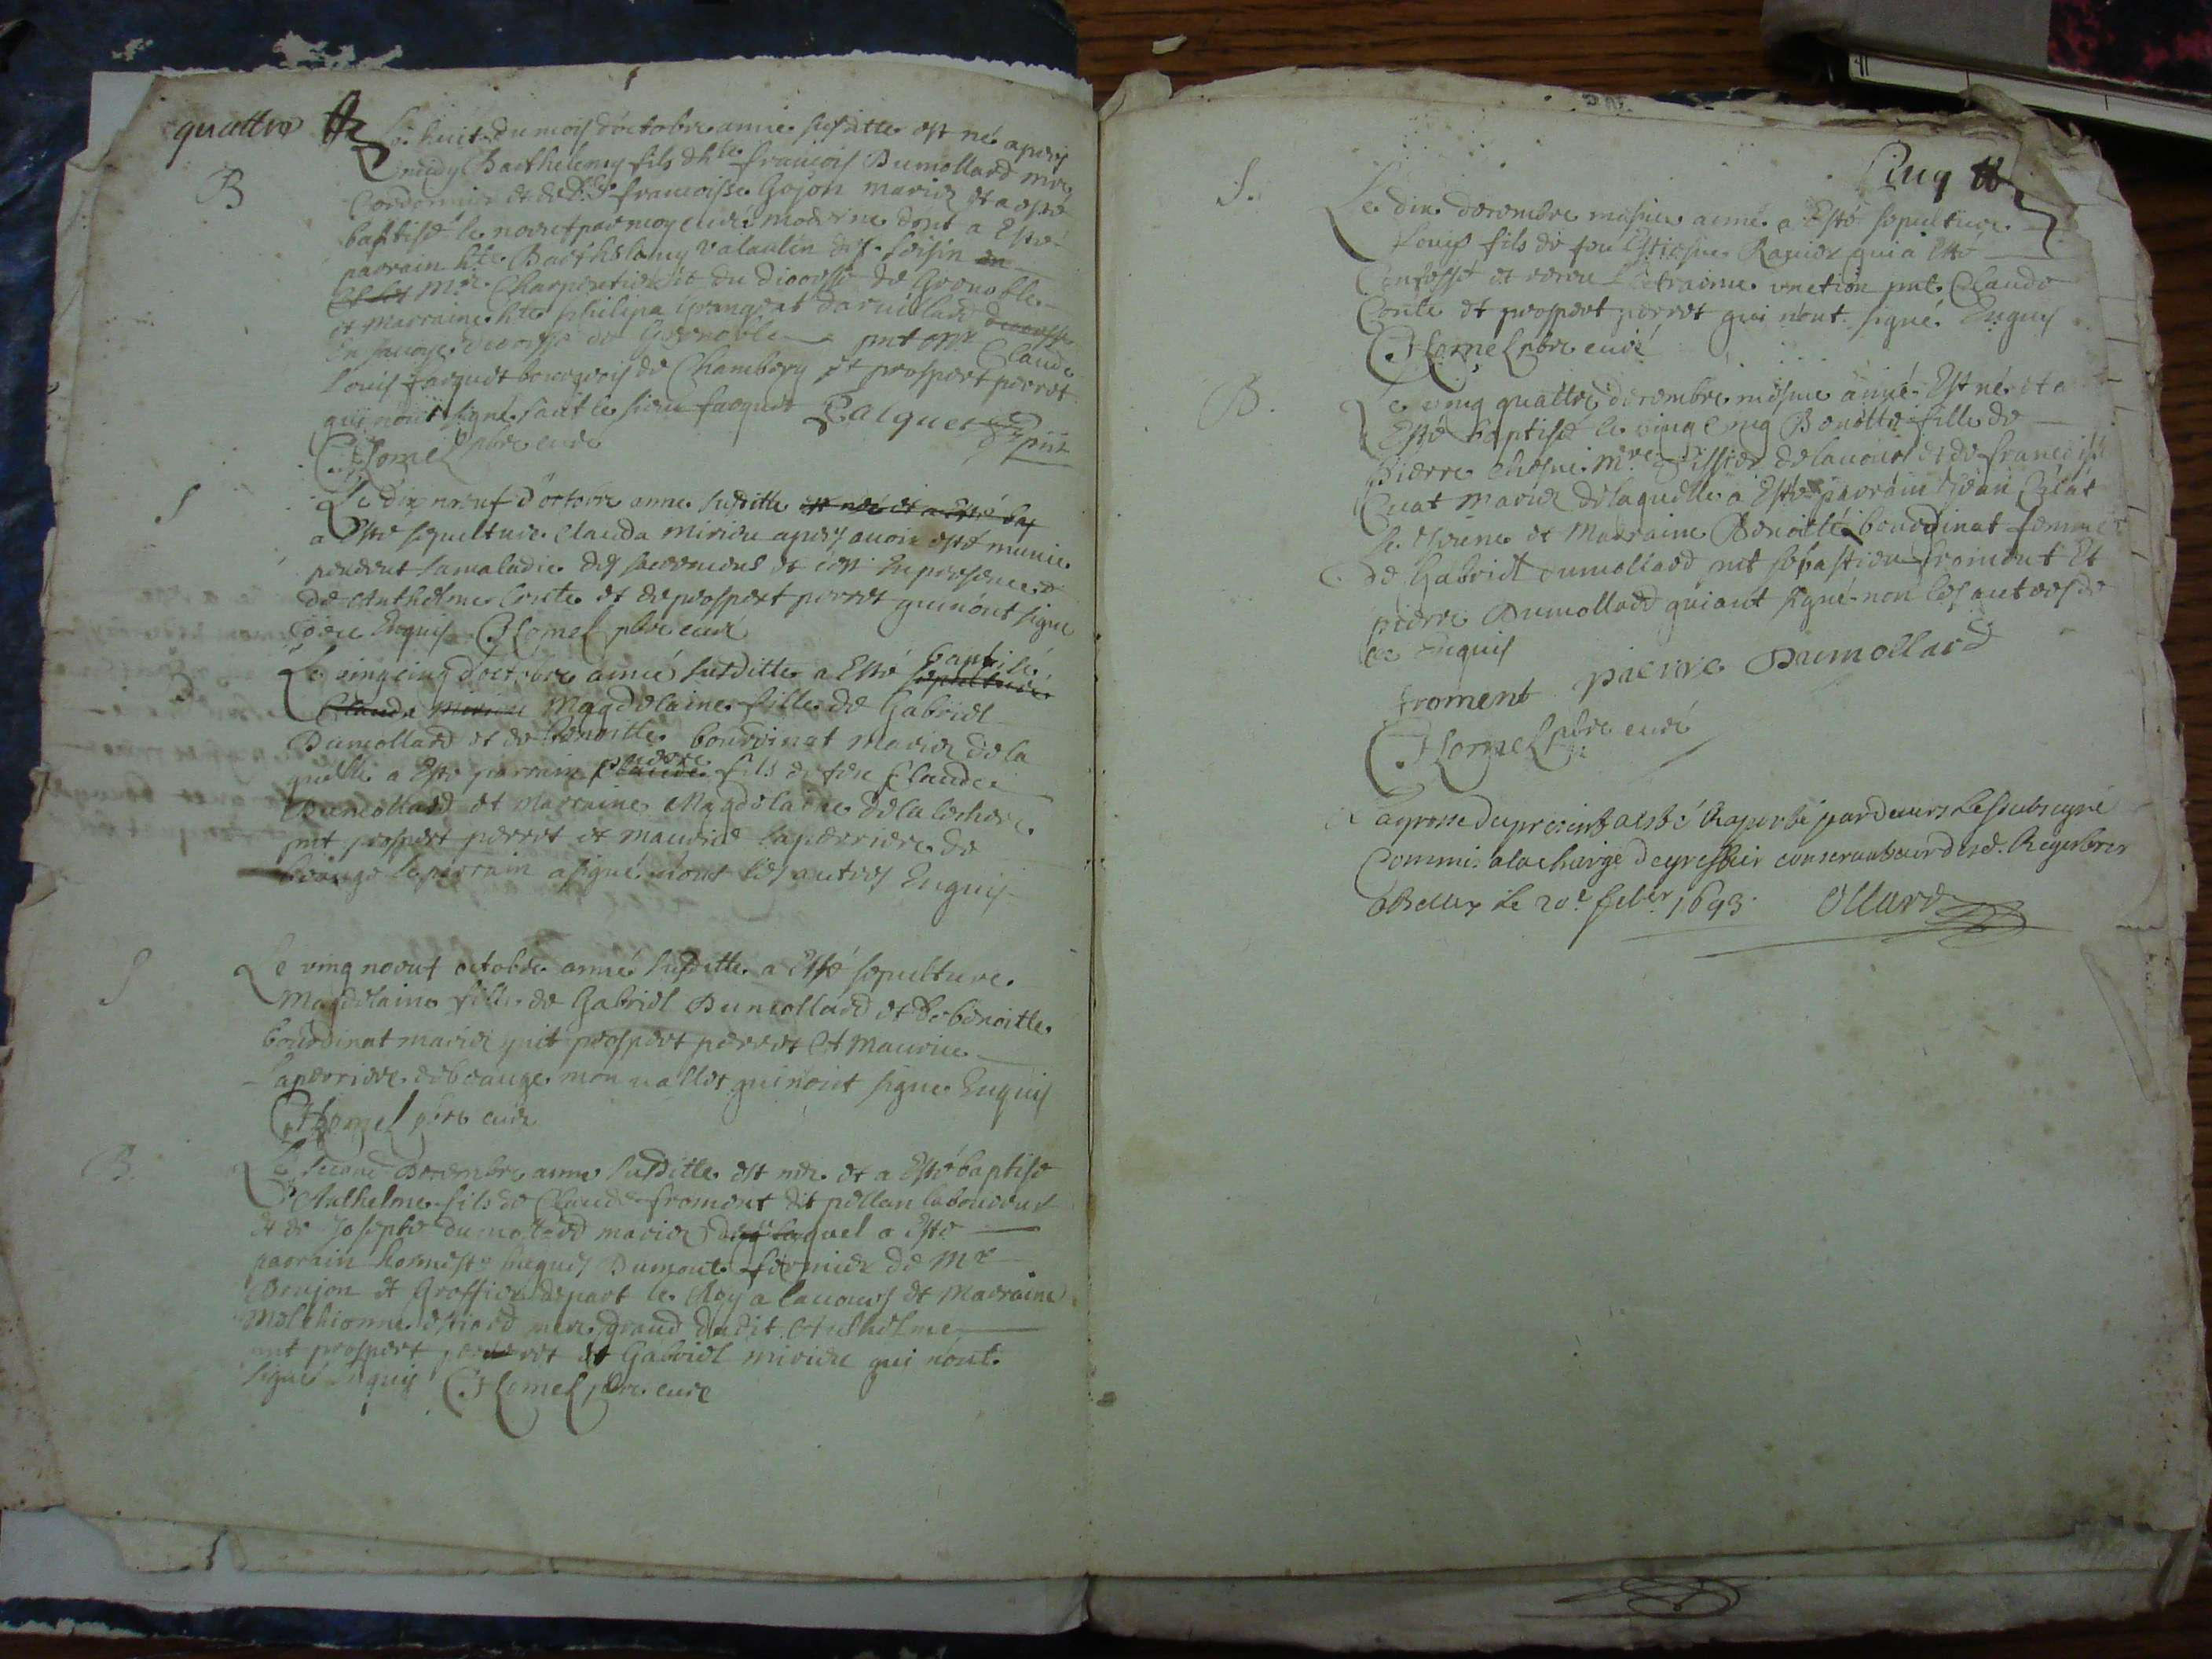 quattre
B
Le huit du mois d'octobre année susditte est né apres
midy Barthelemy fils d hle francois Dumollard mre
Cordonnier et de francoisse Gojon mariez et a esté
baptisé le par moy curé moderne dont a Esté
parrain hle Barthelemy Valentin
mre Charpentier et du diocesse de Grenoble
et Marraine hte philipa
En sauoye diocesse de Grenoble pnt Claude
Louis falquet bourgeois de Chambery et prospert perret
qui nont signé sauf le sieur falquet Falquet pnt
Homel pbre curé
S
Le dix neuf d'octobre anne susditte est né et a Esté bap
a Esté sepulture Clauda Miriou apres auoir esté munie
pendent sa maladie des sacremens et En presence
de Anthelme Conte et de prospert perret qui nont signé
Enquis Homel pbre curé
B
Le ving cinq d'octobre année susditte a Esté baptisé
sepulture
Clauda Magdelaine fille de Gabriel
Dumollard et de benoitte bourdinat mariez de la
quelle a Esté parrain Claude fils de feu Claude
Dumollard et Marraine Magdelaine de la
pnt prospert perret et Maurice laperriere de
beauge le parrain a signé nont les autres Enquis
S
Le ving neuf octobre année susditte a Esté sepulture
Magdelaine fille de Gabriel Dumollard et de benoitte
bourdinat mariez pnt prospert perret Et Maurice
laperriere de beauge mon uallet qui nont signe Enquis
Homel pbre curé
B
Le second Decembre anne susditte est née et a Esté baptisé
Anthelme fils de Claude froment dit pellan laboureur
et de Josephe dumollard mariez duquel a esté
parrain honneste Dumont fermier de Mr
Boujon et Greffier de part le Roy a lauours et Marraine
Melchionne mere grand dudit Anthelme
pnt prospert perret et Gabriel Miriou qui n'ont
signé Enquis Homel pbre curé
Cinq
S.
Le dix decembre mesme année a Esté sepulture
Louis fils de feu Estienne Rauier qui a Esté
Confessé et receu Lextraime onction pnt Claude
Conte et prospert perret qui n'ont signé Enquis
Homel pbre curé
B.
Le ving quattre decembre mesme année Est né et a
Esté baptisé le ving cinq Benoitte fille de
pierre Mre Tissier de lauours et de francoisse
Cuat mariez de laquelle a Esté parrain Jean
le Jeune et Marraine Benoitte bourdinat femme
de Gabriel dumollard pnt sebastien froment Et
pierre Dumollard qui ont signé non les autres de
ce Enquis
froment pierre Dumollard
Homel pbre curé
La grosse du present a esté Raporté par deuers le soubsigné
Commis a la charge de greffier conseruateur desd. Registres
a Belley le 20e feber 1693 Ollard